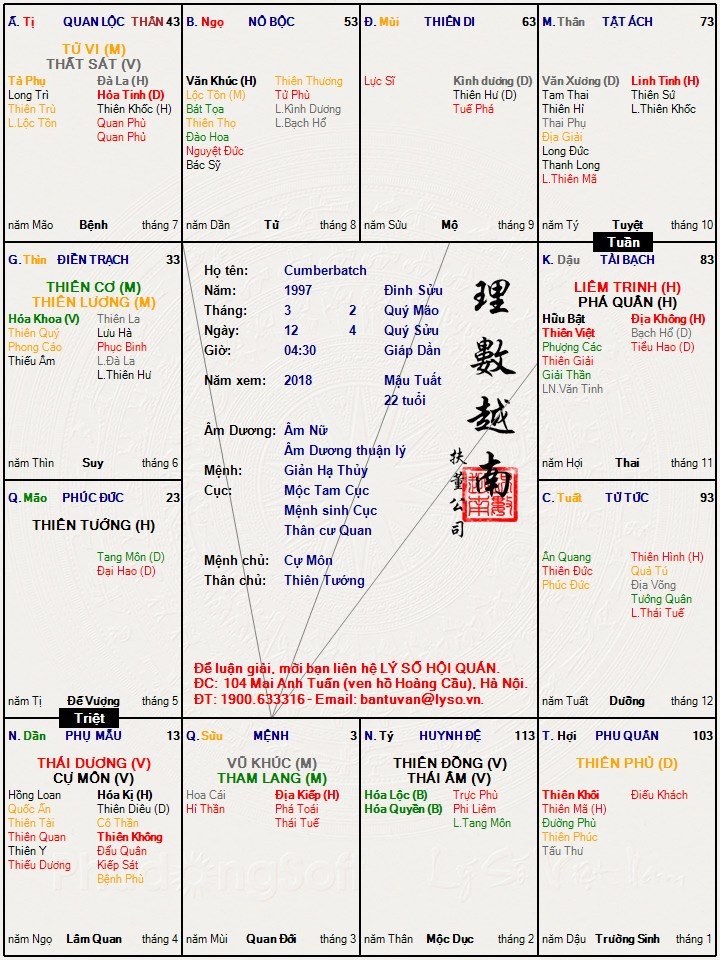 Ấ. Tị QUAN LỘC THÂN 43
TỬ VI (M)
THẤT SÁT (V)
Tả Phụ Đà La (H)
Long Trì Hỏa Tinh (D)
Thiên Trù Thiên Khốc (H)
L.Lộc Tồn Quan Phù
Quan Phủ
năm Mão Bệnh tháng 7
B. Ngọ NÔ BỘC 53
Văn Khúc (H) Thiên Thương
Lộc Tồn (M) Tử Phù
Bát Tọa L.Kình Dương
Thiên Thọ L.Bạch Hổ
Đào Hoa
Nguyệt Đức
Bác Sỹ
năm Dần Tử tháng 8
Đ. Mùi THIÊN DI 63
Lực Sĩ Kình dương (D)
Thiên Hư (D)
Tuế Phá
năm Sửu Mộ tháng 9
M. Thân TẬT ÁCH 73
Văn Xương (D) Linh Tinh (H)
Tam Thai Thiên Sứ
Thiên Hỉ L.Thiên Khốc
Thai Phụ
Địa Giải
Long Đức
Thanh Long
L.Thiên Mã
năm Tý Tuyệt tháng 10
Tuần
G. Thìn ĐIỀN TRẠCH 33
THIÊN CƠ (M)
THIÊN LƯƠNG (M)
Hóa Khoa (V) Thiên La
Thiên Quý Lưu Hà
Phong Cáo Phục Binh
Thiếu Âm L.Đà La
L.Thiên Hư
năm Thìn Suy tháng 6
Họ tên: Cumberbatch
Năm: 1997 Đinh Sửu
Tháng: 3 2 Quý Mão
Ngày: 12 4 Quý Sửu
Giờ: 04:30 Giáp Dần
Năm xem: 2018 Mậu Tuất
22 tuổi
Âm Dương: Âm Nữ
Âm Dương thuận lý
Mệnh: Giản Hạ Thủy
Cục: Mộc Tam Cục
Mệnh sinh Cục
Thân cư Quan
Mệnh chủ: Cự Môn
Thân chủ: Thiên Tướng
理數越南
扶董公司
Để luận giải, mời bạn liên hệ LÝ SỐ HỘI QUÁN.
ĐC: 104 Mai Anh Tuấn (ven hồ Hoàng Cầu), Hà Nội.
ĐT: 1900.633316 - Email: bantuvan@lyso.vn.
K. Dậu TÀI BẠCH 83
LIÊM TRINH (H)
PHÁ QUÂN (H)
Hữu Bật Địa Không (H)
Thiên Việt Bạch Hổ (D)
Phượng Các Tiểu Hao (D)
Thiên Giải
Giải Thần
LN.Văn Tinh
năm Hợi Thai tháng 11
Q. Mão PHÚC ĐỨC 23
THIÊN TƯỚNG (H)
Tang Môn (D)
Đại Hao (D)
năm Tị Đế Vượng tháng 5
Triệt
C. Tuất TỬ TỨC 93
Ân Quang Thiên Hình (H)
Thiên Đức Quả Tú
Phúc Đức Địa Võng
Tướng Quân
L.Thái Tuế
năm Tuất Dưỡng tháng 12
N. Dần PHỤ MẪU 13
THÁI DƯƠNG (V)
CỰ MÔN (V)
Hồng Loan Hóa Kị (H)
Quốc Ấn Thiên Diêu (D)
Thiên Tài Cô Thần
Thiên Quan Thiên Không
Thiên Y Đẩu Quân
Thiếu Dương Kiếp Sát
Bệnh Phù
năm Ngọ Lâm Quan tháng 4
Q. Sửu MỆNH 3
VŨ KHÚC (M)
THAM LANG (M)
Hoa Cái Địa Kiếp (H)
Hỉ Thần Phá Toái
Thái Tuế
năm Mùi Quan Đới tháng 3
N. Tý HUYNH ĐỆ 113
THIÊN ĐỒNG (V)
THÁI ÂM (V)
Hóa Lộc (B) Trực Phù
Hóa Quyền (B) Phi Liêm
L.Tang Môn
năm Thân Mộc Dục tháng 2
T. Hợi PHU QUÂN 103
THIÊN PHỦ (D)
Thiên Khôi Điếu Khách
Thiên Mã (H)
Đường Phù
Thiên Phúc
Tấu Thư
năm Dậu Trường Sinh tháng 1
Lý Số Việt Nam